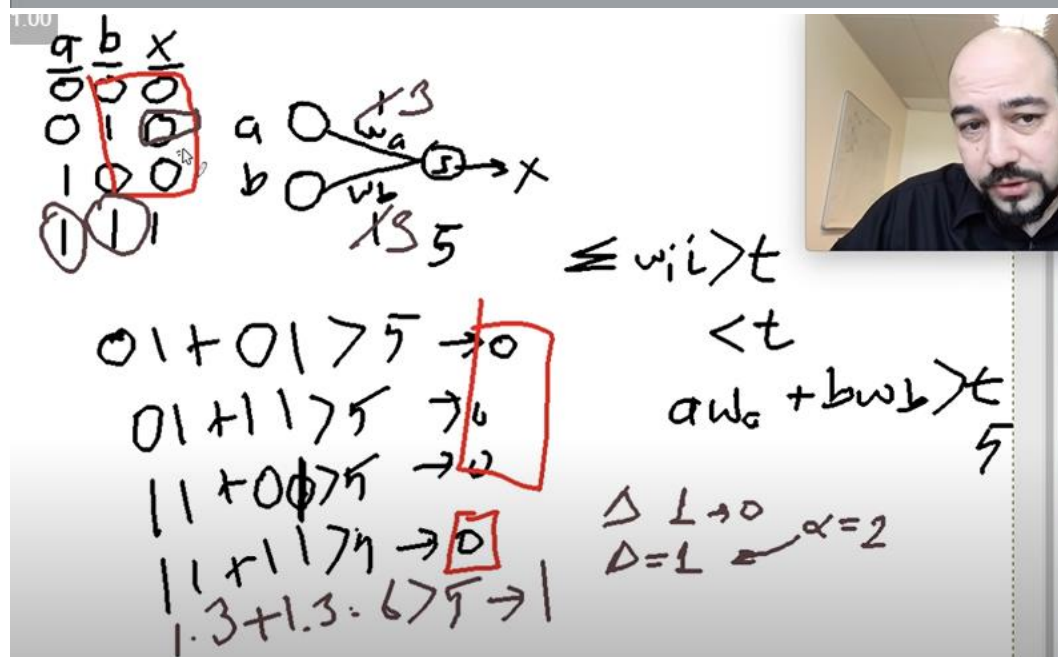 1.00
a b x
0 0 0
0 1 0
1 0 0
1 1 1
a
b
wₐ
3
w_b
3 5
x
Σ wᵢi>t
<t
awₐ + bw_b>t
5
01+01>5 →0
01+11>5 →
11+00>5 →0
11+11>5 →0
1·3+1·3=6>5→1
Δ 1→0
Δ=1 ← α=2